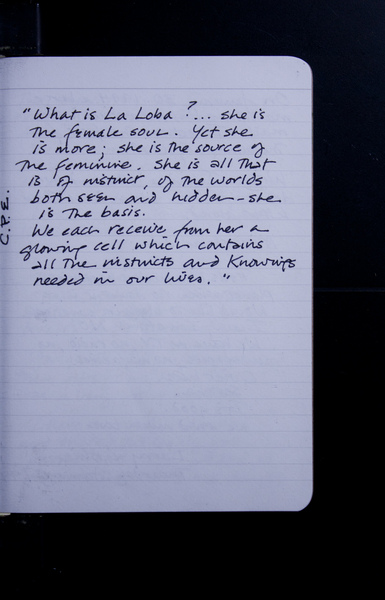 "What is La Loba?... she is
the female soul. Yet she
is more; she is the source of
the feminine. She is all that
is of instinct, of the worlds
both seen and hidden - she
is the basis.
We each receive from her a
glowing cell which contains
all the instincts and knowings
needed in our lives."
C.P.E.